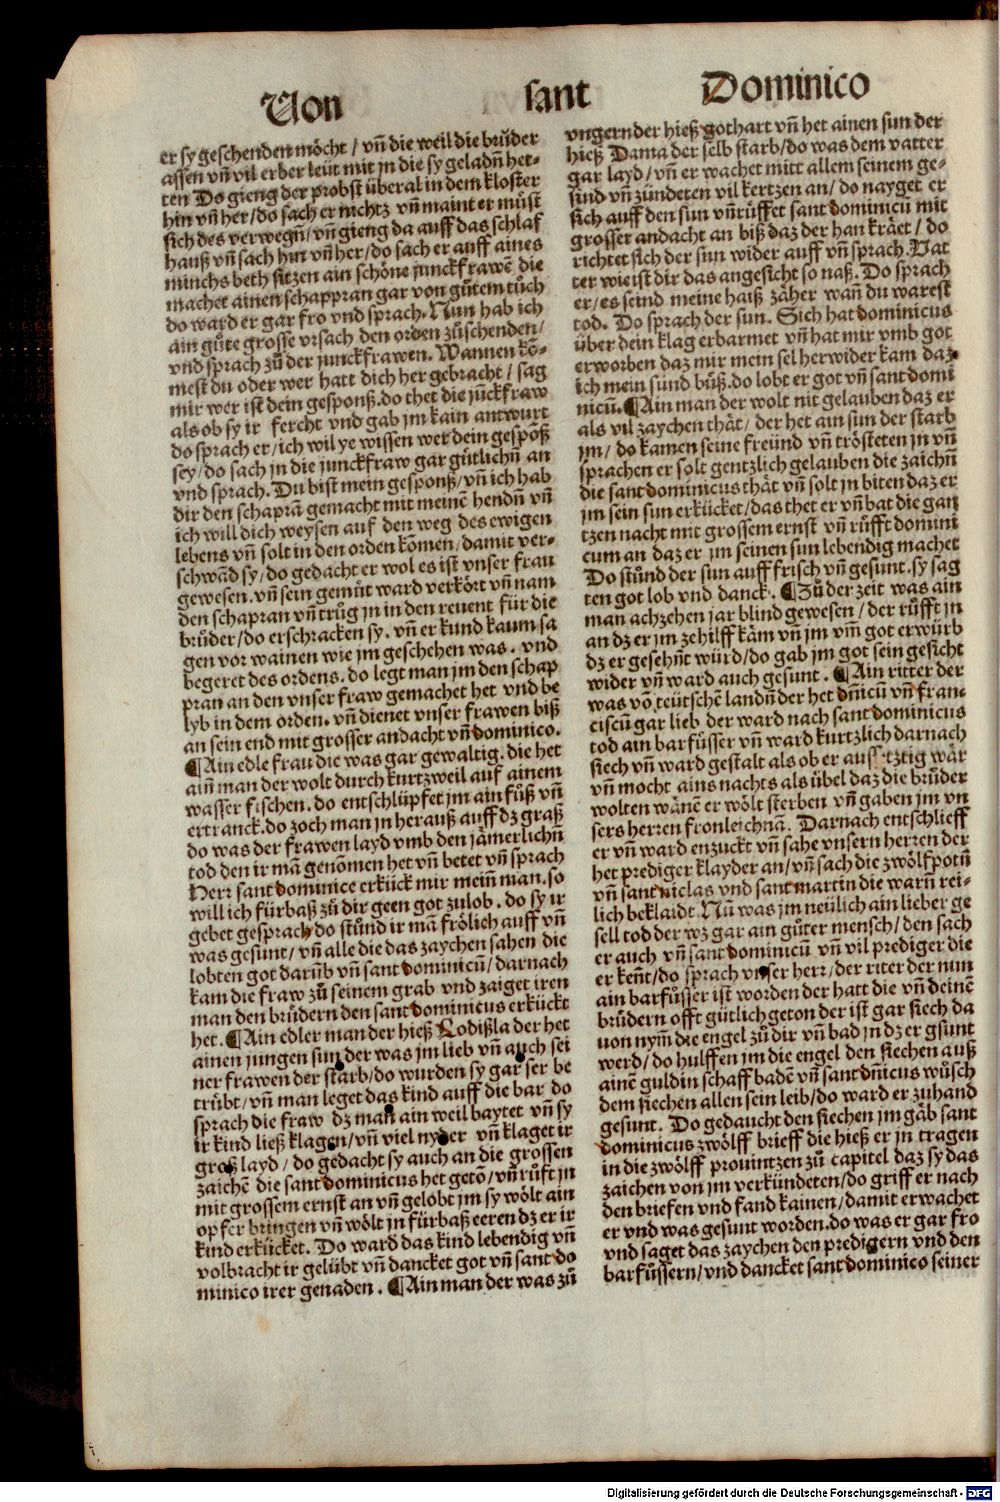 Von sant Dominico
er sy geschenden möcht / vñ die weil die brůder
assen vñ vil erber leüt mit jn die sy geladñ het-
ten Do gieng der probst überal in dem kloster
hin vñ her / do sach er nichtz vñ maint er můst
sich des verwegñ / vñ gieng da auff das schlaf
hauß vñ sach hin vñ her / do sach er auff aines
münchs beth sitzen ain schöne junckfrawẽ die
machet ainen schappran gar von gůtem tůch
do ward er gar fro vnd sprach. Nun hab ich
ain gůte grosse vrsach den orden zůschenden /
vnd sprach zů der junckfrawen. Wannen kõ-
mest du oder wer hatt dich her gebracht / sag
mir wer ist dein gesponß. do thet die jũckfraw
als ob sy ir fercht vnd gab jm kain antwurt
do sprach er / ich wil ye wissen wer dein gespõß
sey / do sach jn die junckfraw gar gütlichñ an
vnd sprach. Du bist mein gesponß / vñ ich hab
dir den schaprã gemacht mit meinẽ hendñ vñ
ich will dich weysen auf den weg des ewigen
lebens vñ solt in den orden kõmen / damit ver-
schwãd sy / do gedacht er wol es ist vnser frau
gewesen. vñ sein gemüt ward verkört vñ nam
den schapran vñ trůg jn in den reuent für die
brüder / do erschracken sy. vñ er kund kaum sa
gen vor wainen wie jm geschehen was. vnd
begeret des ordens. do legt man jm den schap
pran an den vnser fraw gemachet het vnd be
lyb in dem orden. vñ dienet vnser frawen biß
an sein end mit grosser andacht vñ dominico.
¶Ain edle frau die was gar gewaltig. die het
aiñ man der wolt durch kurtzweil auf ainem
wasser fischen. do entschlüpfet jm ain fůß vñ
ertranck. do zoch man jn herauß auff dz graß
do was der frawen layd vmb den jämerlichñ
tod den ir mã genõmen het vñ betet vñ sprach
Herr sant dominice erkück mir meiñ man. so
will ich fürbaß zů dir geen got zulob. do sy ir
gebet gesprach do stůnd ir mã frölich auff vñ
was gesunt / vñ alle die das zaychen sahen die
lobten got darũb vñ sant dominicũ / darnach
kam die fraw zů seinem grab vnd zaiget iren
man den brüdern den sant dominicus erkückt
het. ¶Ain edler man der hieß Lodißla der het
ainen jungen sun der was jm lieb vñ auch sei
ner frawen der starb / do wurden sy gar ser be
trübt / vñ man leget das kind auff die bar do
sprach die fraw dz man ain weil baytet vñ sy
ir kind ließ klagen / vñ viel nyder vñ klaget ir
groß layd / do gedacht sy auch an die grossen
zaichẽ die sant dominicus het getõ / vñ růft jn
mit grossem ernst an vñ gelobt jm sy wölt ain
opfer bringen vñ wölt jn fürbaß eeren dz er ir
kind erkücket. Do ward das kind lebendig vñ
volbracht ir gelübt vñ dancket got vñ sant do
minico irer genaden. ¶Ain man der was zů
vngern der hieß gothart vñ het ainen sun der
hieß Dama der selb starb / do was dem vatter
gar layd / vñ er wachet mitt allem seinem ge-
sind vñ zündeten vil kertzen an / do nayget er
sich auff den sun vñ rüffet sant dominicũ mit
grosser andacht an biß daz der han kräet / do
richtet sich der sun wider auff vñ sprach. Vat
ter wie ist dir das angesicht so naß. Do sprach
er / es seind meine haiß zäher wañ du warest
tod. Do sprach der sun. Sich hat dominicus
über dein klag erbarmet vñ hat mir vmb got
erworben daz mir mein sel herwider kam daz
ich mein sünd bůß. do lobt er got vñ sant domi
nicũ. ¶Ain man der wolt nit gelauben daz er
als vil zaychen thät / der het ain sun der starb
jm / do kamen seine freünd vñ trösteten jn vñ
sprachen er solt gentzlich gelauben die zaichñ
die sant dominicus thät vñ solt jn biten daz er
jm sein sun erkücket / das thet er vñ bat die gan
tzen nacht mit grossem ernst vñ růfft domini
cum an daz er jm seinen sun lebendig machet
Do stůnd der sun auff frisch vñ gesunt. sy sag
ten got lob vnd danck. ¶Zů der zeit was ain
man achzehen jar blind gewesen / der růfft jn
an dz er jm ze hilff käm vñ jm vm̃ got erwürb
dz er gesehñt würd / do gab jm got sein gesicht
wider vñ ward auch gesunt. ¶Ain ritter der
was võ teütschẽ landñ der het dñicũ vñ fran-
ciscũ gar lieb der ward nach sant dominicus
tod ain barfůsser vñ ward kurtzlich darnach
siech vñ ward gestalt als ob er aussetztig wär
vñ mocht ains nachts als übel daz die brüder
wolten wänẽ er wölt sterben vñ gaben jm vn
sers herren fronleichnã. Darnach entschlieff
er vñ ward enzuckt vñ sahe vnsern herren der
het prediger klayder an / vñ sach die zwölfpotñ
vñ sant niclas vnd sant martin die warñ rei-
lich beklaidt. Nũ was jm neülich ain lieber ge
sell tod der wz gar ain gůter mensch / den sach
er auch vñ sant dominicũ vñ vil prediger die
er keñt / do sprach vnser herr / der riter der nun
ain barfůsser ist worden der hatt die vñ deinẽ
brůdern offt gütlich geton der ist gar siech da
uon nym̃ die engel zů dir vñ bad jn dz er gsunt
werd / do hulffen jm die engel den siechen auß
ainẽ guldin schaff badẽ vñ sant dñicus wůsch
dem siechen allen sein leib / do ward er zuhand
gesunt. Do gedaucht den siechen jm gäb sant
dominicus zwölff brieff die hieß er jn tragen
in die zwölff prouintzen zů capitel daz sy das
zaichen von jm verkündeten / do griff er nach
den briefen vnd fand kainen / damit erwachet
er vnd was gesunt worden. do was er gar fro
vnd saget das zaychen den predigern vnd den
barfůssern / vnd dancket sant dominico seiner
Digitalisierung gefördert durch die Deutsche Forschungsgemeinschaft - DFG